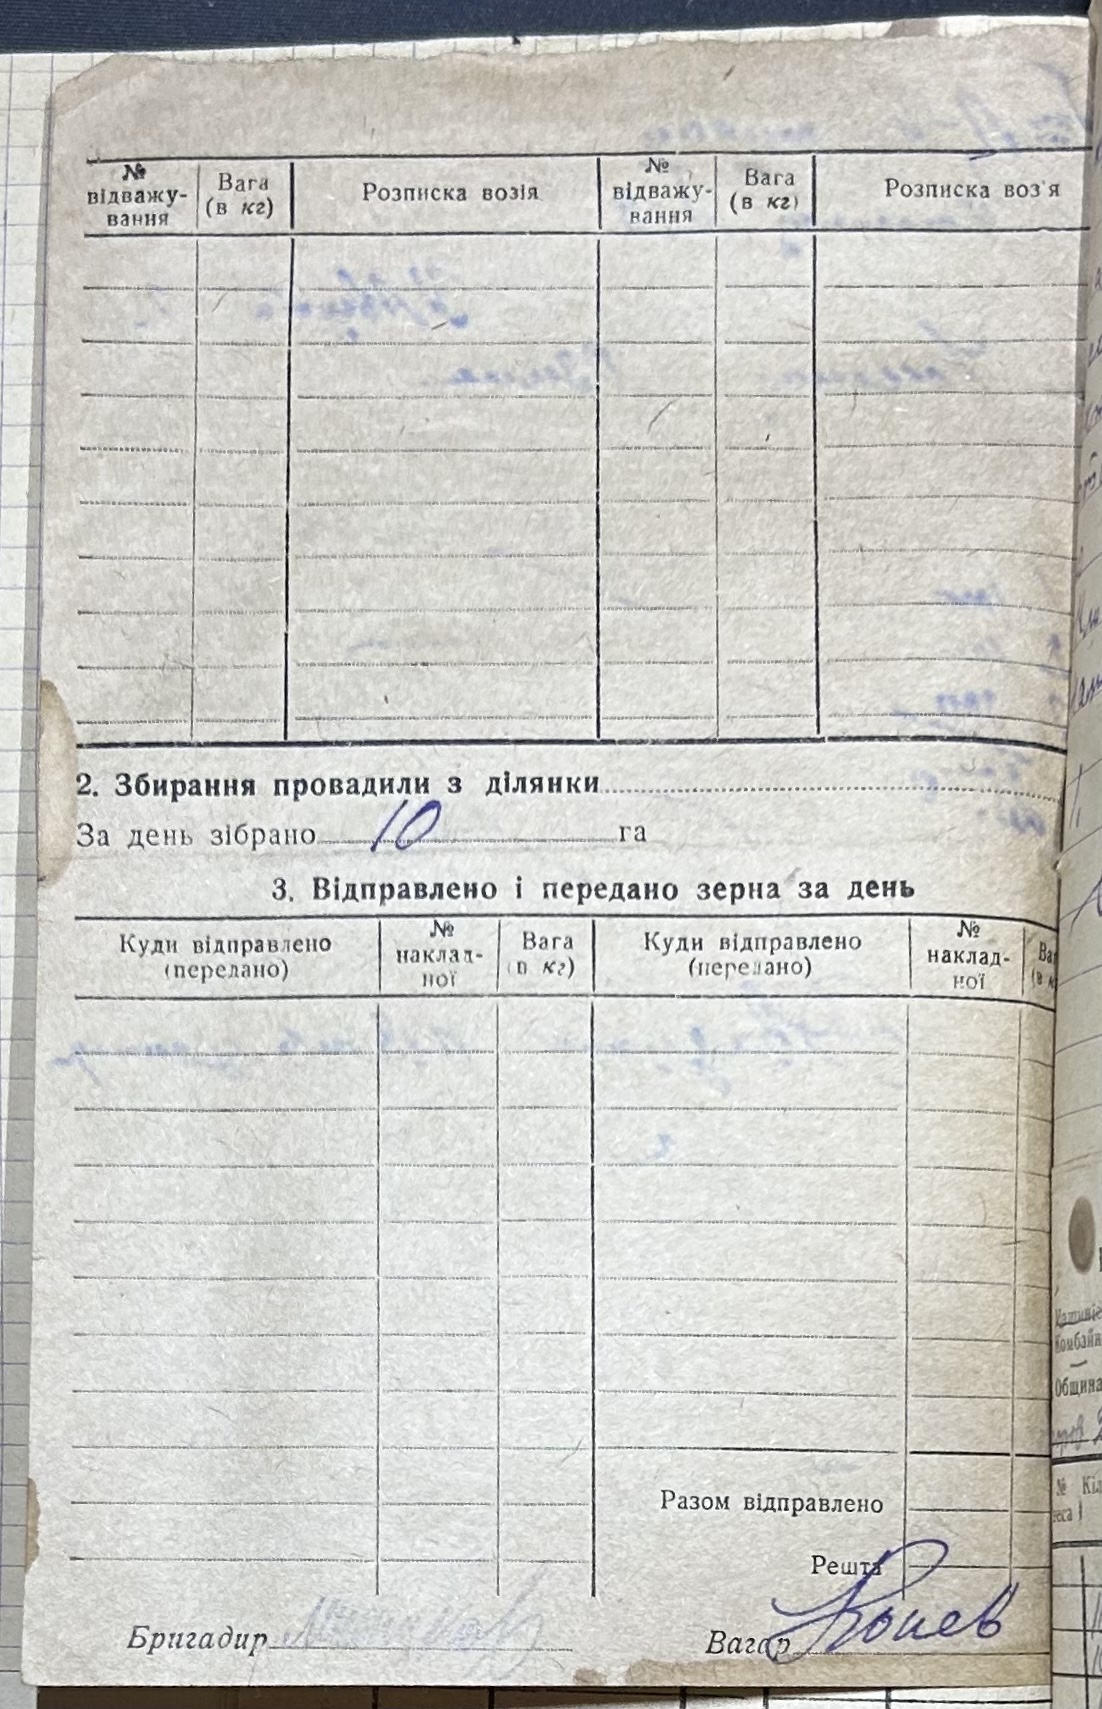 № відважу-вання Вага (в кг) Розписка возія № відважу-вання Вага (в кг) Розписка воз'я
2. Збирання провадили з ділянки
За день зібрано 10 га
3. Відправлено і передано зерна за день
Куди відправлено (передано) № наклад-ної Вага (в кг) Куди відправлено (передано) № наклад-ної Ваг (в к
Разом відправлено
Решта
Бригадир Вагар Конев